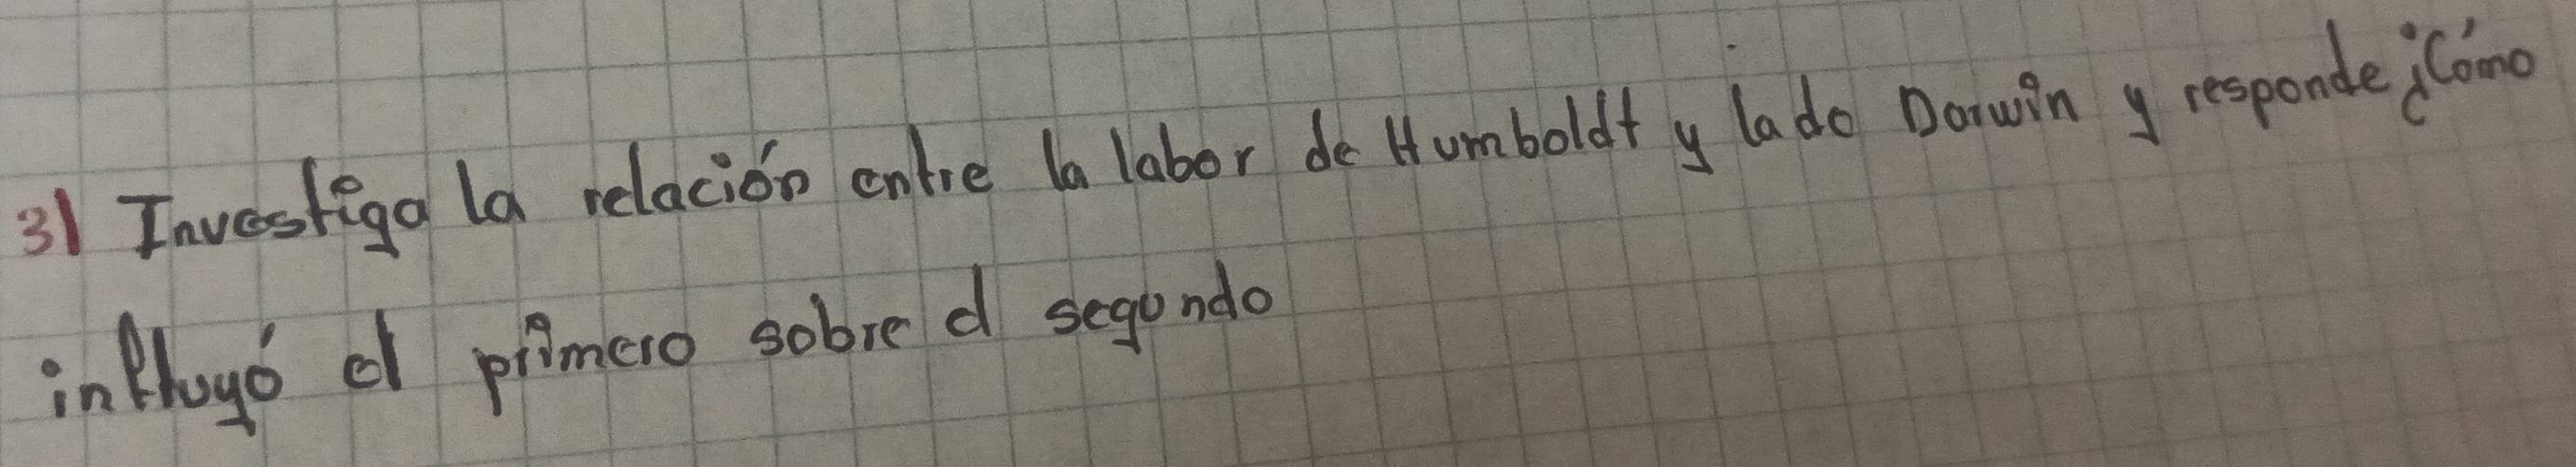 3) Investiga la relación entre la labor de Humboldt y la de Darwin y responde ¿Cómo
influyó el primero sobre el segundo